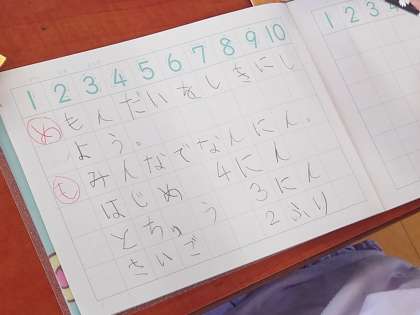 1 2 3 4 5 6 7 8 9 10
め もんだいをしきにし
よう。
も みんなでなんにん。
はじめ 4にん
とちゅう 3にん
さいご 2ふり
1 2 3